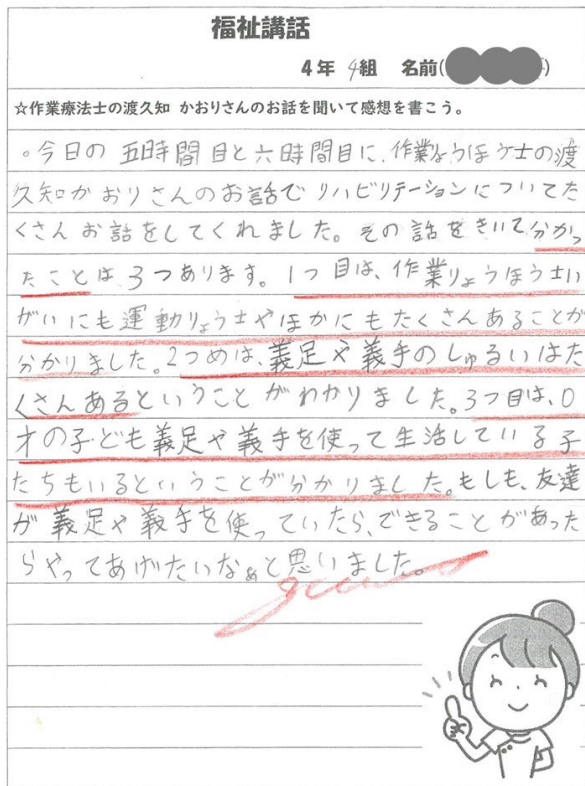 福祉講話
4年 4組 名前( )
☆作業療法士の渡久知 かおりさんのお話を聞いて感想を書こう。
。今日の五時間目と六時間目に、作業りょうほう士の渡
久知かおりさんのお話でリハビリテーションについてた
くさんお話をしてくれました。その話をきいて分かっ
たことは3つあります。1つ目は、作業りょうほう士い
がいにも運動りょう士やほかにもたくさんあることが
分かりました。2つめは、義足や義手のしゅるいはた
くさんあるということがわかりました。3つ目は、0
才の子ども義足や義手を使って生活している子
たちもいるということが分かりました。もしも、友達
が義足や義手を使っていたら、できることがあった
らやってあげたいなぁと思いました。